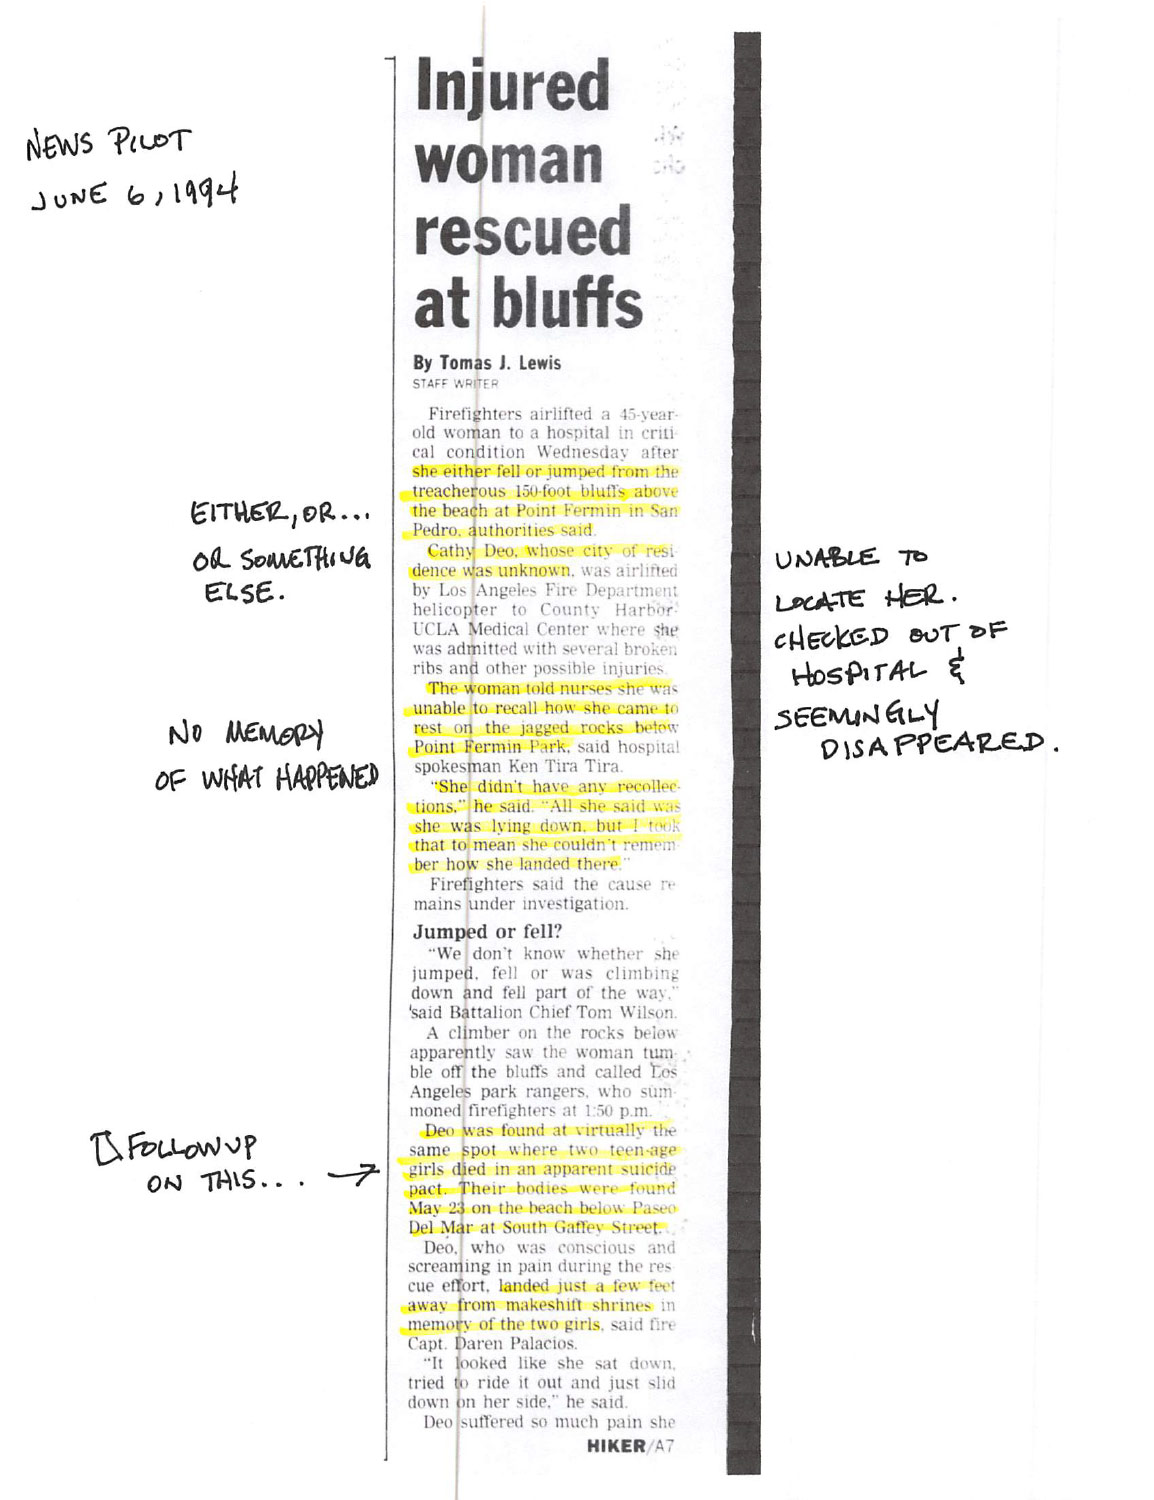 NEWS PILOT
JUNE 6, 1994
Injured
woman
rescued
at bluffs
By Tomas J. Lewis
STAFF WRITER
Firefighters airlifted a 45-year-
old woman to a hospital in criti-
cal condition Wednesday after
she either fell or jumped from the
treacherous 150-foot bluffs above
the beach at Point Fermin in San
Pedro, authorities said.
Cathy Deo, whose city of resi-
dence was unknown, was airlifted
by Los Angeles Fire Department
helicopter to County Harbor-
UCLA Medical Center where she
was admitted with several broken
ribs and other possible injuries.
The woman told nurses she was
unable to recall how she came to
rest on the jagged rocks below
Point Fermin Park, said hospital
spokesman Ken Tira Tira.
"She didn't have any recollec-
tions," he said. "All she said was
she was lying down, but I took
that to mean she couldn't remem-
ber how she landed there."
Firefighters said the cause re-
mains under investigation.
Jumped or fell?
"We don't know whether she
jumped, fell or was climbing
down and fell part of the way,"
said Battalion Chief Tom Wilson.
A climber on the rocks below
apparently saw the woman tum-
ble off the bluffs and called Los
Angeles park rangers, who sum-
moned firefighters at 1:50 p.m.
Deo was found at virtually the
same spot where two teen-age
girls died in an apparent suicide
pact. Their bodies were found
May 23 on the beach below Paseo
Del Mar at South Gaffey Street.
Deo, who was conscious and
screaming in pain during the res-
cue effort, landed just a few feet
away from makeshift shrines in
memory of the two girls, said fire
Capt. Daren Palacios.
"It looked like she sat down,
tried to ride it out and just slid
down on her side," he said.
Deo suffered so much pain she
HIKER/A7
EITHER, OR...
OR SOMETHING
ELSE.
NO MEMORY
OF WHAT HAPPENED
FOLLOW UP
ON THIS...
UNABLE TO
LOCATE HER.
CHECKED OUT OF
HOSPITAL &
SEEMINGLY
DISAPPEARED.